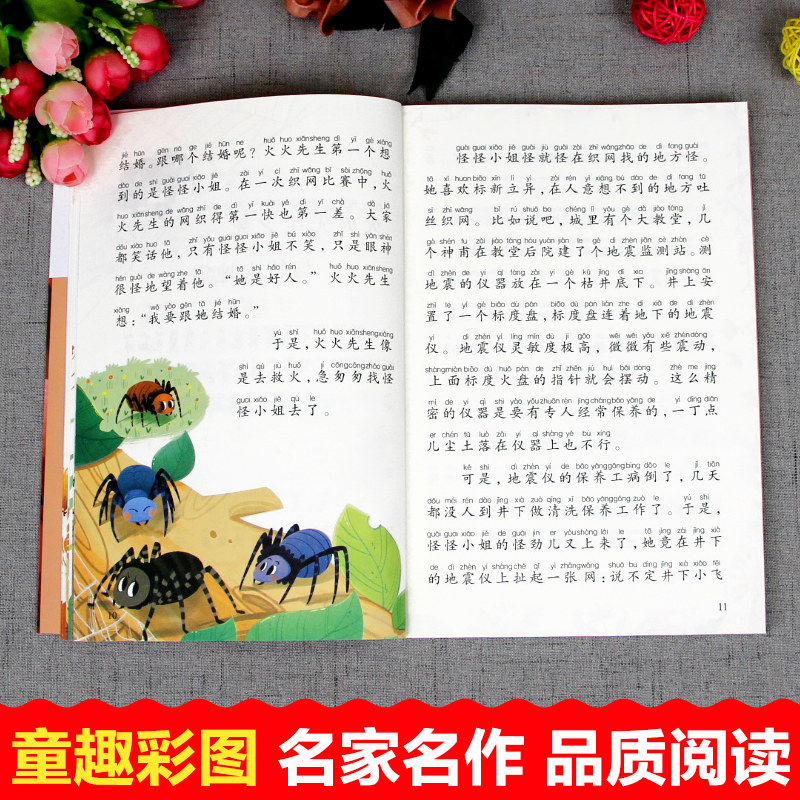 jié hūn gēn nǎ ge jié hūn ne huǒ huo xiānsheng dì yī gè xiǎng
结婚。跟哪个结婚呢？火火先生第一个想
dào de shì guài guai xiǎo jiě zài yí cì zhī wǎng bǐ sài zhōng huǒ
到的是怪怪小姐。在一次织网比赛中，火
huo xiānsheng de wǎng zhī de dì yī kuài yě dì yī chà dà jiā
火先生的网织得第一快也第一差。大家
dōu xiào huo tā zhǐ yǒu guài guai xiǎo jiě bú xiào zhǐ shì yǎn shén
都笑话他，只有怪怪小姐不笑，只是眼神
hěn guài de wàng zhe tā tā shì hǎo rén huǒ huo xiānsheng
很怪地望着他。“她是好人。”火火先生
xiǎng wǒ yào gēn tā jié hūn
想：“我要跟她结婚。”
yú shì huǒ huo xiānsheng xiàng
于是，火火先生像
shì qù jiù huǒ jí cōngcōng zhǎo guài
是去救火，急匆匆找怪
guai xiǎo jiě qù le
怪小姐去了。
10
guài guai xiǎo jiě guài jiù guài zài zhī wǎng zhǎo de dì fang guài
怪怪小姐怪就怪在织网找的地方怪。
tā xǐ huan biāo xīn lì yì zài rén yì xiǎng bú dào de dì fang tǔ
她喜欢标新立异，在人意想不到的地方吐
sī zhī wǎng bǐ rú shuō ba chéng lǐ yǒu gè dà jiào táng jǐ
丝织网。比如说吧，城里有个大教堂，几
gè shén fu zài jiào táng hòu yuàn jiàn le gè dì zhèn jiān cè zhàn cè
个神甫在教堂后院建了个地震监测站。测
dì zhèn de yí qì fàng zài yí gè kū jǐng dǐ xià jǐng shàng ān
地震的仪器放在一个枯井底下。井上安
zhì le yí gè biāo dù pán biāo dù pán lián zhe dì xià de dì zhèn
置了一个标度盘，标度盘连着地下的地震
yí dì zhèn yí líng mǐn dù jí gāo wēi wēi yǒu xiē zhèn dòng
仪。地震仪灵敏度极高，微微有些震动，
shàng miàn biāo dù huǒ pán de zhǐ zhēn jiù huì bǎi dòng zhè me jīng
上面标度火盘的指针就会摆动。这么精
mì de yí qì shì yào yǒu zhuān rén jīng cháng bǎo yǎng de yì dīng diǎn
密的仪器是要有专人经常保养的，一丁点
er chén tǔ luò zài yí qì shàng yě bù xíng
儿尘土落在仪器上也不行。
kě shì dì zhèn yí de bǎo yǎng gōng bìng dǎo le jǐ tiān
可是，地震仪的保养工病倒了，几天
dōu méi rén dào jǐng xià zuò qīng xǐ bǎo yǎng gōng zuò le yú shì
都没人到井下做清洗保养工作了。于是，
guài guai xiǎo jiě de guài jìn er yòu shàng lái le tā jìng zài jǐng xià
怪怪小姐的怪劲儿又上来了，她竟在井下
de dì zhèn yí shàng chě qǐ yì zhāng wǎng shuō bu dìng jǐng xià xiǎo fēi
的地震仪上扯起一张网：说不定井下小飞
11
童趣彩图 名家名作 品质阅读